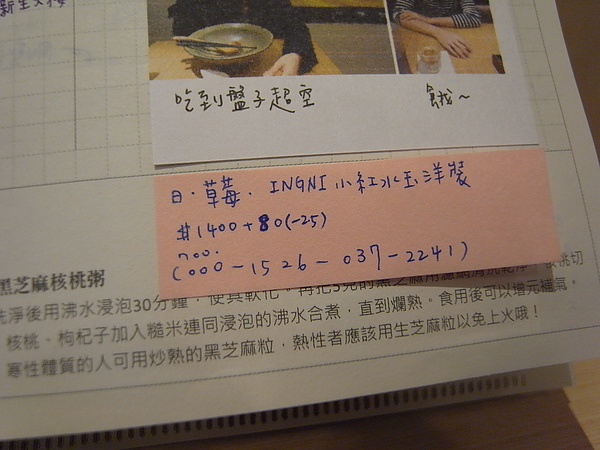 吃到盤子超空
餓~
日.草莓. INGNI 小紅水玉洋裝
$1400+80(-25)
700.
(000-1526-037-2241)
黑芝麻核桃粥
洗淨後用沸水浸泡30分鐘,使其軟化。再把3克的黑芝麻用濾網清洗乾淨
核桃、枸杞子加入糙米連同浸泡的沸水合煮,直到爛熟。食用後可以增元補氣。
寒性體質的人可用炒熟的黑芝麻粒,熱性者應該用生芝麻粒以免上火哦!